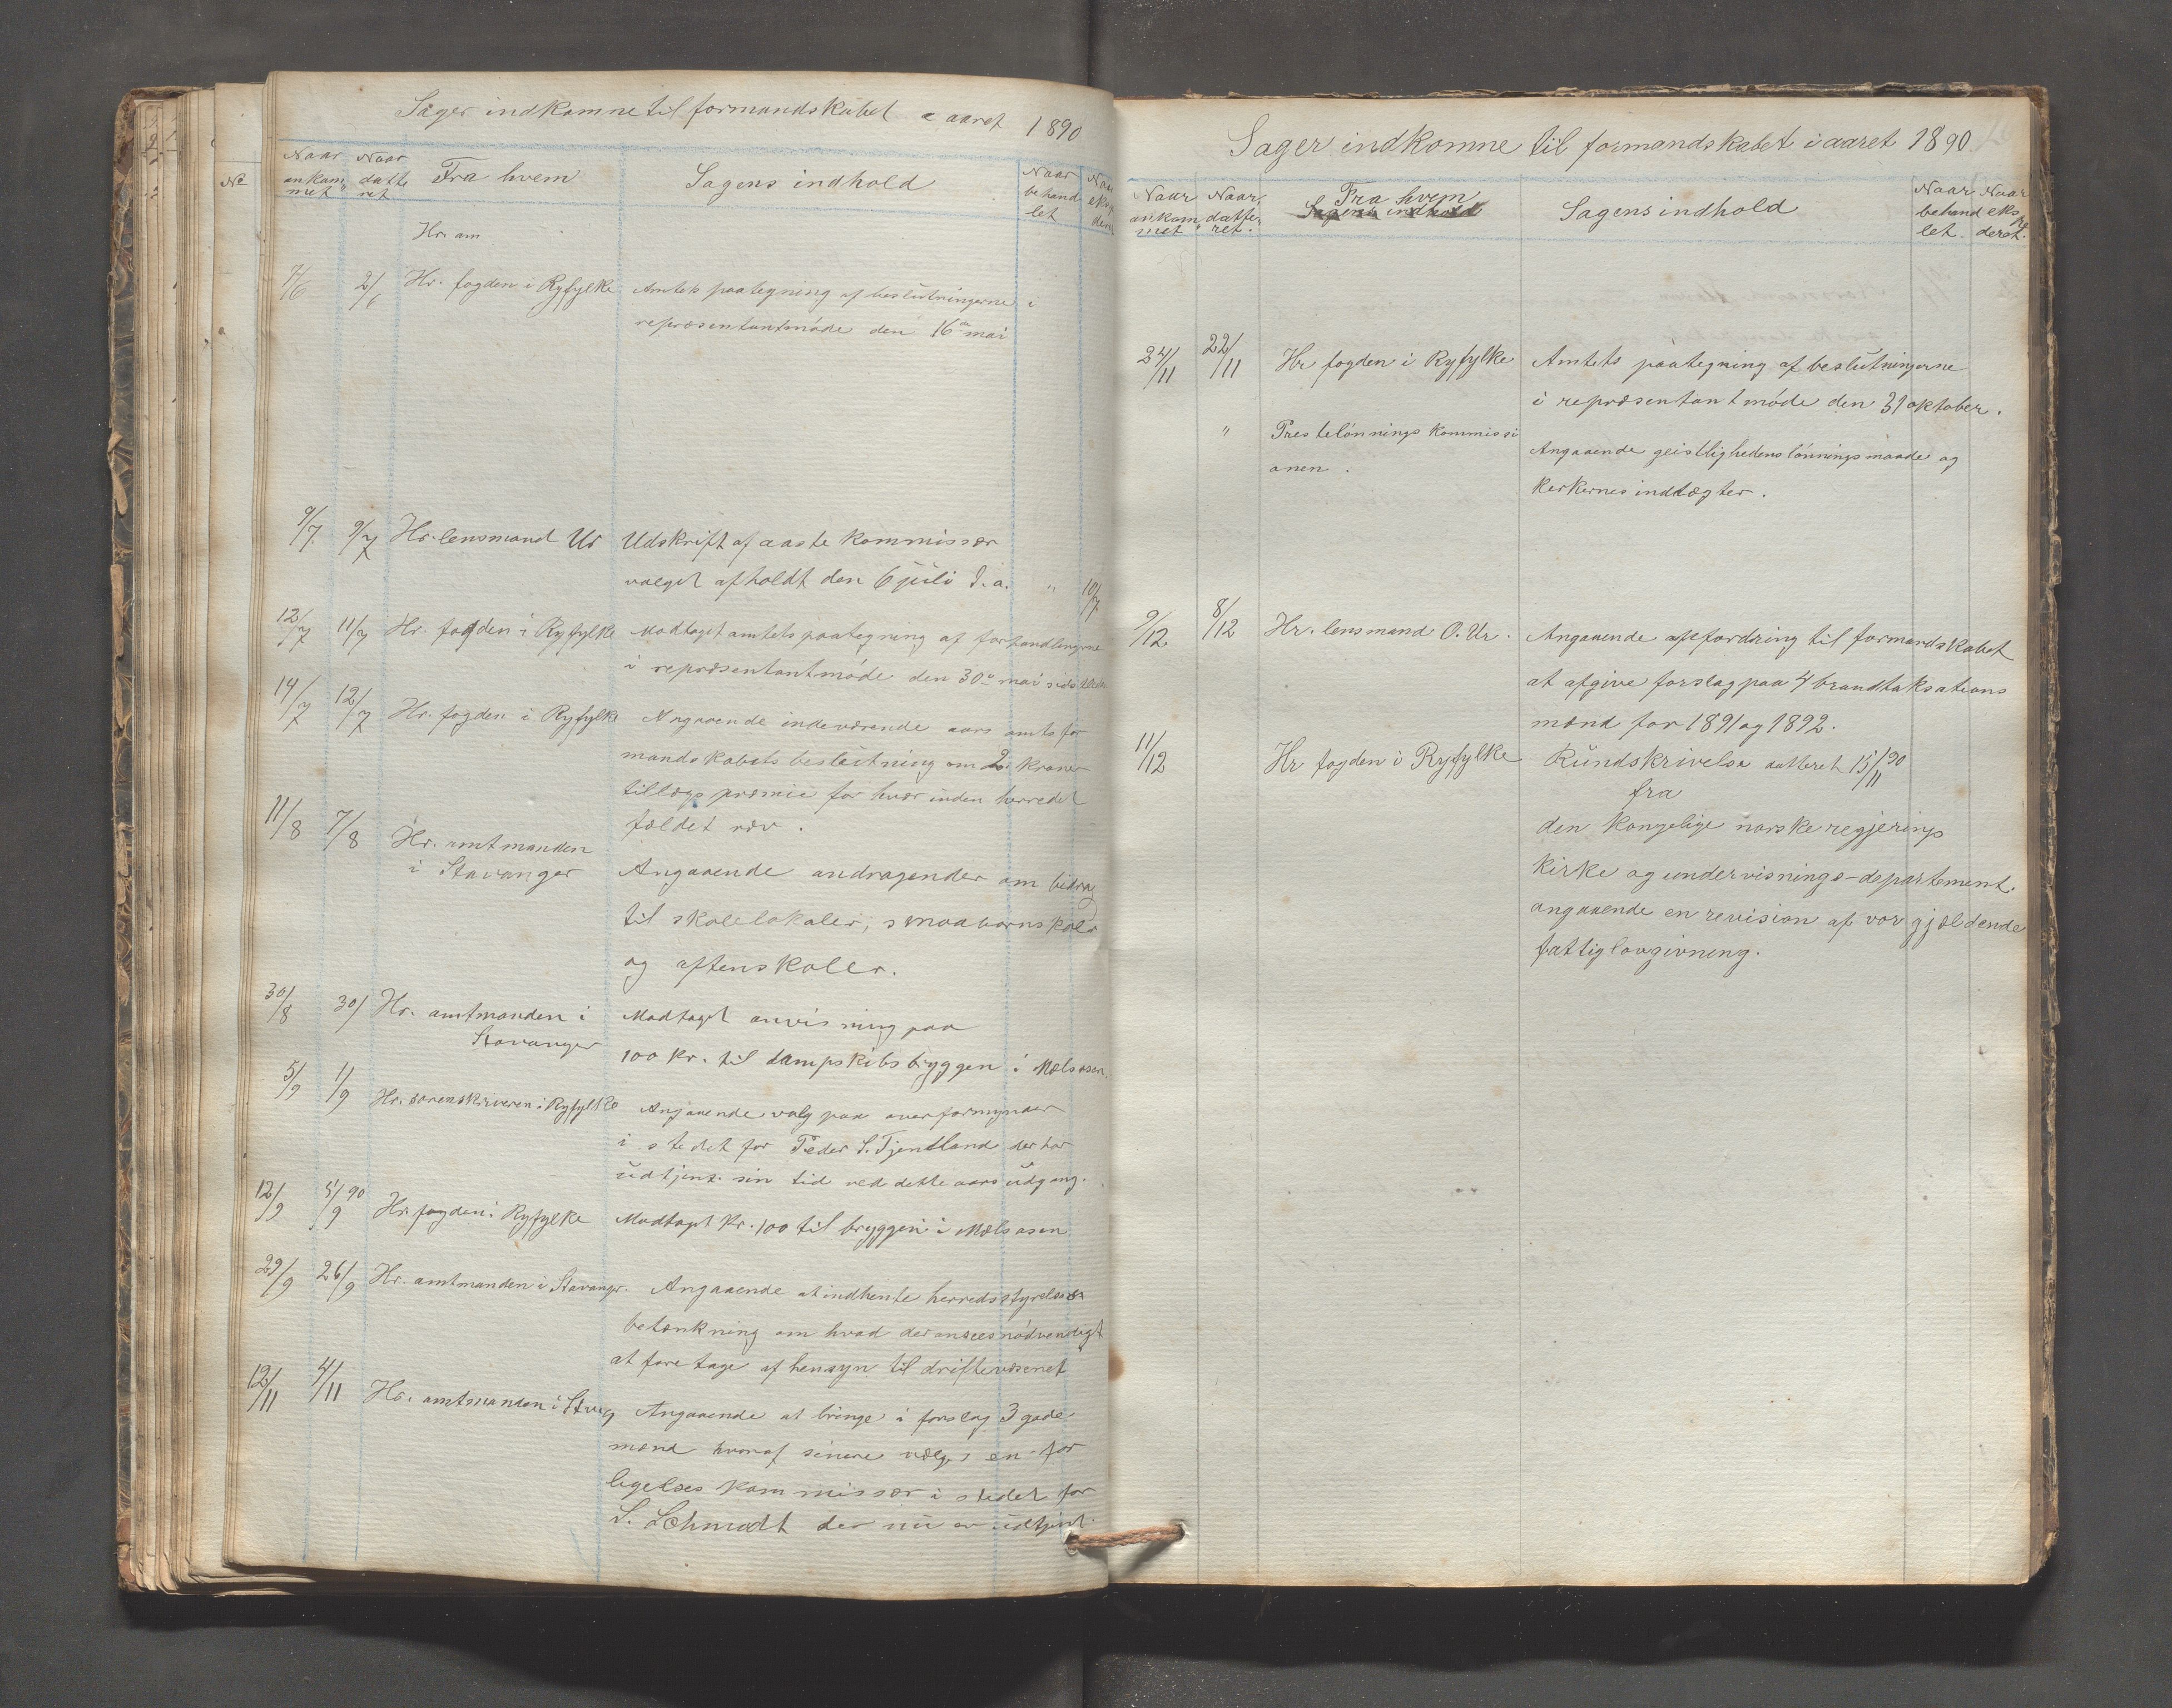 Sager indkomne til formandskabet i aaret 1890
No
Naar ankommet
Naar datteret
Fra hvem
Sagens indhold
Naar behandlet
Naar eksp deret
Hr. am
7/6 2/6 Hr. fogden i Ryfylke Amtets paategning af beslutningerne i
repræsentantmøde den 16de mai
9/7 9/7 Hr. lensmand Ur Udskrift af aaste kommissær
valget afholdt den 6 juli d.a. " 10/7
12/7 11/7 Hr. fogden i Ryfylke Modtaget amtets paategning af forhandlingerne
i repræsentantmøde den 30te mai sidstleden
14/7 12/7 Hr. fogden i Ryfylke Angaaende indeværende aars amtsfor
mandskabets beslutning om 2 kroner
tillægs præmie for hver inden herredet
fældet ræv.
11/8 7/8 Hr. amtmanden
i Stavanger Angaaende andragender om bidrag
til skolelokaler, smaabarnskoler
og aftenskoler.
30/8 30/ Hr. amtmanden i
Stavanger Modtaget anvisning paa
100 kr. til dampskibsbryggen i Mælsosen.
5/9 1/9 Hr. sorenskriveren i Ryfylke Angaaende valg paa overformynder
i stedet for Peder S. Tjentland der har
udtjent sin tid ved dette aars udgang.
12/9 5/9 90 Hr. fogden i Ryfylke Modtaget Kr. 100 til bryggen i Mælsosen
29/9 26/9 Hr. amtmanden i Stavanger. Angaaende at indhente herredsstyrelsens
betænkning om hvad der ansees nødvendigt
at foretage af hensyn til driftevæsenet
12/11 4/11 Hr. amtmanden i Stvg Angaaende at bringe i forslag 3 gode
mænd hvoraf senere vælges en for
ligelses kommissær i stedet for
S. Schmidt der nu er udtjent.
Sager indkomne til formandskabet i aaret 1890
Naar ankommet
Naar datteret.
Fra hvem
Sagens indhold
Sagens indhold
Naar behandlet.
Naar eksp deret.
24/11 22/11 Hr fogden i Ryfylke Amtets paategning af beslutningerne
i repræsentantmøde den 31 oktober.
" Prestelønnings kommissi
onen. Angaaende geistlighedens lønningsmaade og
kerkernes indtægter.
9/12 8/12 Hr. lensmand O. Ur. Angaaende opfordring til formandskabet
at afgive forslag paa 4 brandtaksations
mænd for 1891 og 1892.
11/12 Hr fogden i Ryfylke Rundskrivelse datteret 15/11 90
fra
den kongelige norske regjerings
kirke og undervisnings-departement.
angaaende en revision af vor gjældende
fattiglovgivning.